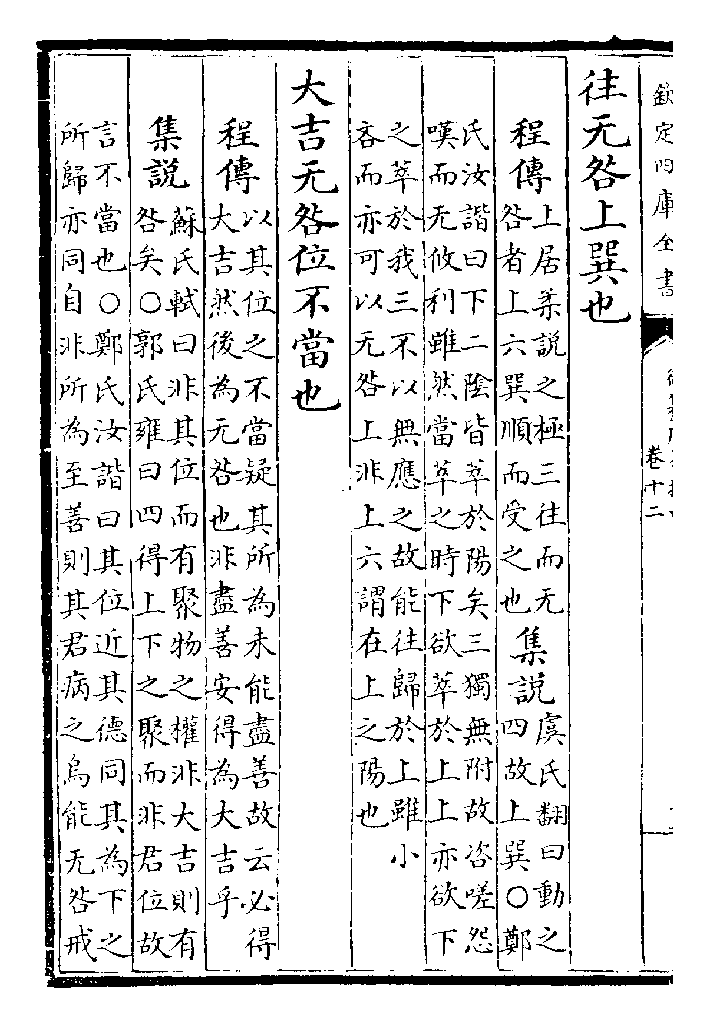 欽定四庫全書
卷十二
往无咎上巽也
程傳
上居柔說之極三往而无
咎者上六巽順而受之也
集說
虞氏翻曰動之
四故上巽○鄭
氏汝諧曰下二陰皆萃於陽矣三獨無附故咨嗟怨
嘆而无攸利雖然當萃之時下欲萃於上上亦欲下
之萃於我三不以無應之故能往歸於上雖小
吝而亦可以无咎上非上六謂在上之陽也
大吉无咎位不當也
程傳
以其位之不當疑其所為未能盡善故云必得
大吉然後為无咎也非盡善安得為大吉乎
集說
蘇氏軾曰非其位而有聚物之權非大吉則有
咎矣○郭氏雍曰四得上下之聚而非君位故
言不當也○鄭氏汝諧曰其位近其德同其為下之
所歸亦同自非所為至善則其君病之烏能无咎戒